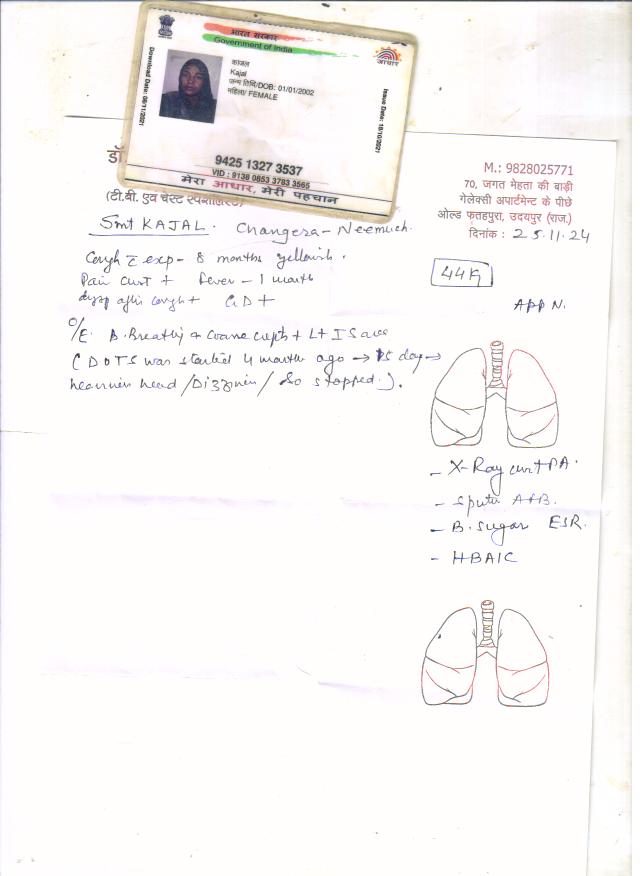 भारत सरकार
Government of India
आधार
काजल
Kajal
जन्म तिथि/DOB: 01/01/2002
महिला/ FEMALE
Download Date: 08/11/2021
Issue Date: 18/10/2021
9425 1327 3537
VID : 9138 0853 3783 3565
मेरा आधार, मेरी पहचान
डॉ
(टी.बी. एव चेस्ट स्पेशलिस्ट)
M.: 9828025771
70, जगत मेहता की बाड़ी
गेलेक्सी अपार्टमेन्ट के पीछे
ओल्ड फतहपुरा, उदयपुर (राज.)
दिनांक : 25.11.24
Smt KAJAL. Changera- Neemuch.
Cough c exp- 8 months yellowish.
Pain chest + fever - 1 month
dysp after cough + GD +
44 Kg
APP N.
O/E. B. Breathing + coarse crepts + Lt I S area
( DOTS was started 4 months ago → 15 day →
heaviness head / Dizziness / So stopped ).
- X-Ray chest PA.
- Sputu AFB.
- B. sugar ESR.
- HBA1C